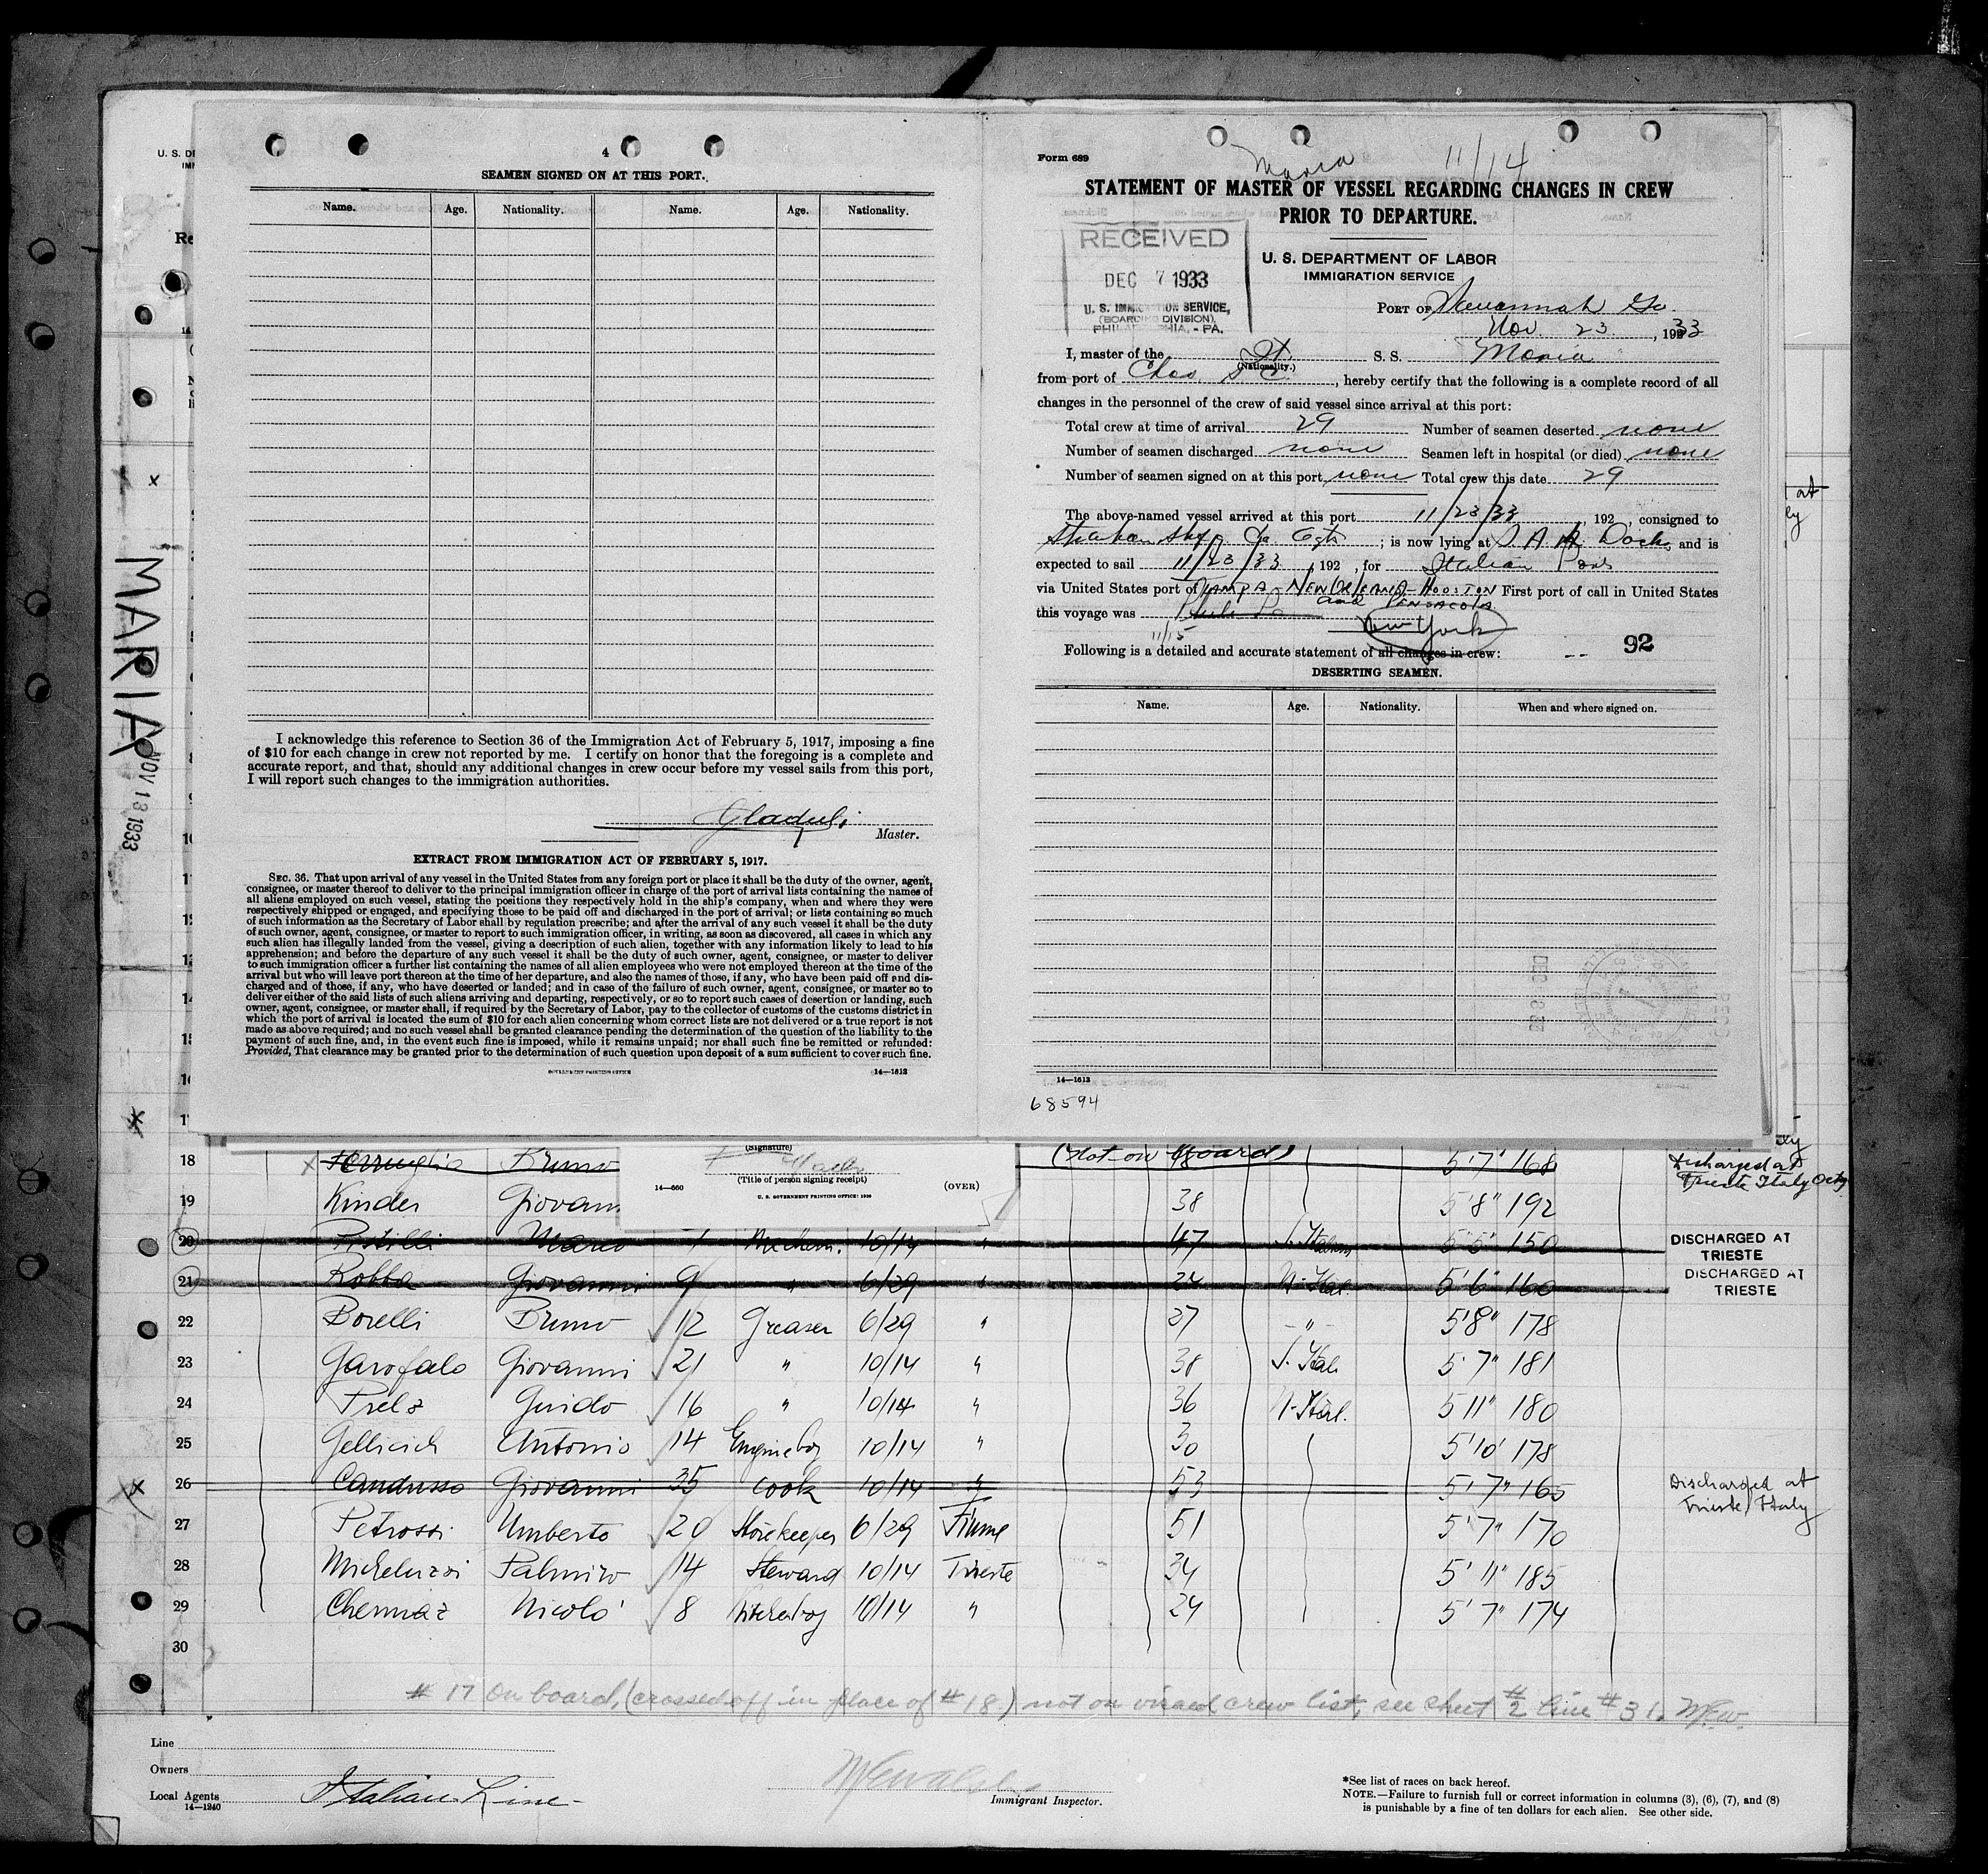 4
SEAMEN SIGNED ON AT THIS PORT.
Name. Age. Nationality. Name. Age. Nationality.
I acknowledge this reference to Section 36 of the Immigration Act of February 5, 1917, imposing a fine
of $10 for each change in crew not reported by me. I certify on honor that the foregoing is a complete and
accurate report, and that, should any additional changes in crew occur before my vessel sails from this port,
I will report such changes to the immigration authorities.
Master.
EXTRACT FROM IMMIGRATION ACT OF FEBRUARY 5, 1917.
SEC. 36. That upon arrival of any vessel in the United States from any foreign port or place it shall be the duty of the owner, agent,
consignee, or master thereof to deliver to the principal immigration officer in charge of the port of arrival lists containing the names of
all aliens employed on such vessel, stating the positions they respectively hold in the ship's company, when and where they were
respectively shipped or engaged, and specifying those to be paid off and discharged in the port of arrival; or lists containing so much
of such information as the Secretary of Labor shall by regulation prescribe; and after the arrival of any such vessel it shall be the duty
of such owner, agent, consignee, or master to report to such immigration officer, in writing, as soon as discovered, all cases in which any
such alien has illegally landed from the vessel, giving a description of such alien, together with any information likely to lead to his
apprehension; and before the departure of any such vessel it shall be the duty of such owner, agent, consignee, or master to deliver
to such immigration officer a further list containing the names of all alien employees who were not employed thereon at the time of the
arrival but who will leave port thereon at the time of her departure, and also the names of those, if any, who have been paid off and dis-
charged and of those, if any, who have deserted or landed; and in case of the failure of such owner, agent, consignee, or master so to
deliver either of the said lists of such aliens arriving and departing, respectively, or so to report such cases of desertion or landing, such
owner, agent, consignee, or master shall, if required by the Secretary of Labor, pay to the collector of customs of the customs district in
which the port of arrival is located the sum of $10 for each alien concerning whom correct lists are not delivered or a true report is not
made as above required; and no such vessel shall be granted clearance pending the determination of the question of the liability to the
payment of such fine, and, in the event such fine is imposed, while it remains unpaid; nor shall such fine be remitted or refunded:
Provided, That clearance may be granted prior to the determination of such question upon deposit of a sum sufficient to cover such fine.
GOVERNMENT PRINTING OFFICE 14—1613
Form 689 Maria 11/14
STATEMENT OF MASTER OF VESSEL REGARDING CHANGES IN CREW
PRIOR TO DEPARTURE.
RECEIVED
DEC 7 1933
U. S. IMMIGRATION SERVICE,
(BOARDING DIVISION),
PHILADELPHIA, - PA.
U. S. DEPARTMENT OF LABOR
IMMIGRATION SERVICE
PORT OF Savannah Ga.
Nov. 23, 1933
I, master of the It. S. S. Maria
(Nationality.)
from port of Chas. S C., hereby certify that the following is a complete record of all
changes in the personnel of the crew of said vessel since arrival at this port:
Total crew at time of arrival 29 Number of seamen deserted none
Number of seamen discharged none Seamen left in hospital (or died) none
Number of seamen signed on at this port none Total crew this date 29
The above-named vessel arrived at this port 11/23/33, 192 , consigned to
Strachan Shpg Co. Agts; is now lying at Dock, and is
expected to sail 11/23/33, 192 , for Italian Ports
via United States port of TAMPA - NEW ORLEANS - HOUSTON First port of call in United States
and PENSACOLA
this voyage was
New York
11/15
Following is a detailed and accurate statement of all changes in crew: -- 92
DESERTING SEAMEN.
Name. Age. Nationality. When and where signed on.
14—1613
68594
MARIA
NOV 13 1933
(Signature)
(Title of person signing receipt)
14—560 U. S. GOVERNMENT PRINTING OFFICE: 1930 (OVER)
18 Ferruglio Bruno (Not on board) 5'7" 168 Discharged at Trieste Italy Oct
19 Kinder Giovan 38 5'8" 192
20 Pistilli Marco 10/14 " 47 S. Italian 5'5" 150 DISCHARGED AT TRIESTE
21 Robba Giovanni 9 " 6/29 " 24 N. Ital. 5'6" 160 DISCHARGED AT TRIESTE
22 Borelli Bruno 12 Greaser 6/29 " 27 -"- 5'8" 178
23 Garofalo Giovanni 21 " 10/14 " 38 S. Ital. 5'7" 181
24 Prelz Guido 16 " 10/14 " 36 N. Ital. 5'11" 180
25 Gellicich Antonio 14 Engineboy 10/14 " 30 5'10" 178
26 Candusso Giovanni 35 Cook 10/14 " 53 5'7" 165 Discharged at Trieste Italy
27 Petrossi Umberto 20 Storekeeper 6/29 Fiume 51 5'7" 170
28 Micheluzzi Palmiro 14 Steward 10/14 Trieste 34 5'11" 185
29 Chermaz Nicolo' 8 Kitchenboy 10/14 " 24 5'7" 174
30
# 17 On board, (crossed off in place of # 18.) not on visaed crew list, see sheet # 2 line # 31. M.E.W.
Line
Owners
Local Agents Italian Line -
14—1240
Immigrant Inspector.
*See list of races on back hereof.
NOTE.—Failure to furnish full or correct information in columns (3), (6), (7), and (8)
is punishable by a fine of ten dollars for each alien. See other side.